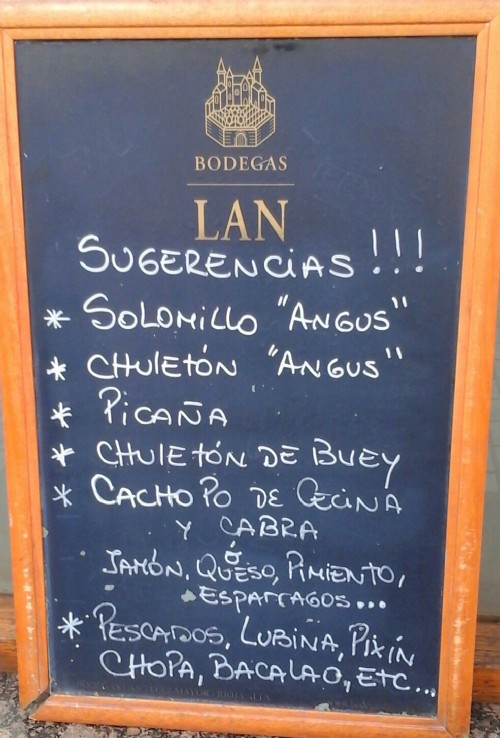 BODEGAS
LAN
SUGERENCIAS !!!
* SOLOMILLO "ANGUS"
* CHULETÓN "ANGUS"
* PICAÑA
* CHULETÓN DE BUEY
* CACHOPO DE CECINA
Y CABRA
ó
JAMÓN, QUESO, PIMIENTO,
ESPARRAGOS...
* PESCADOS, LUBINA, PIXÍN
CHOPA, BACALAO, ETC...